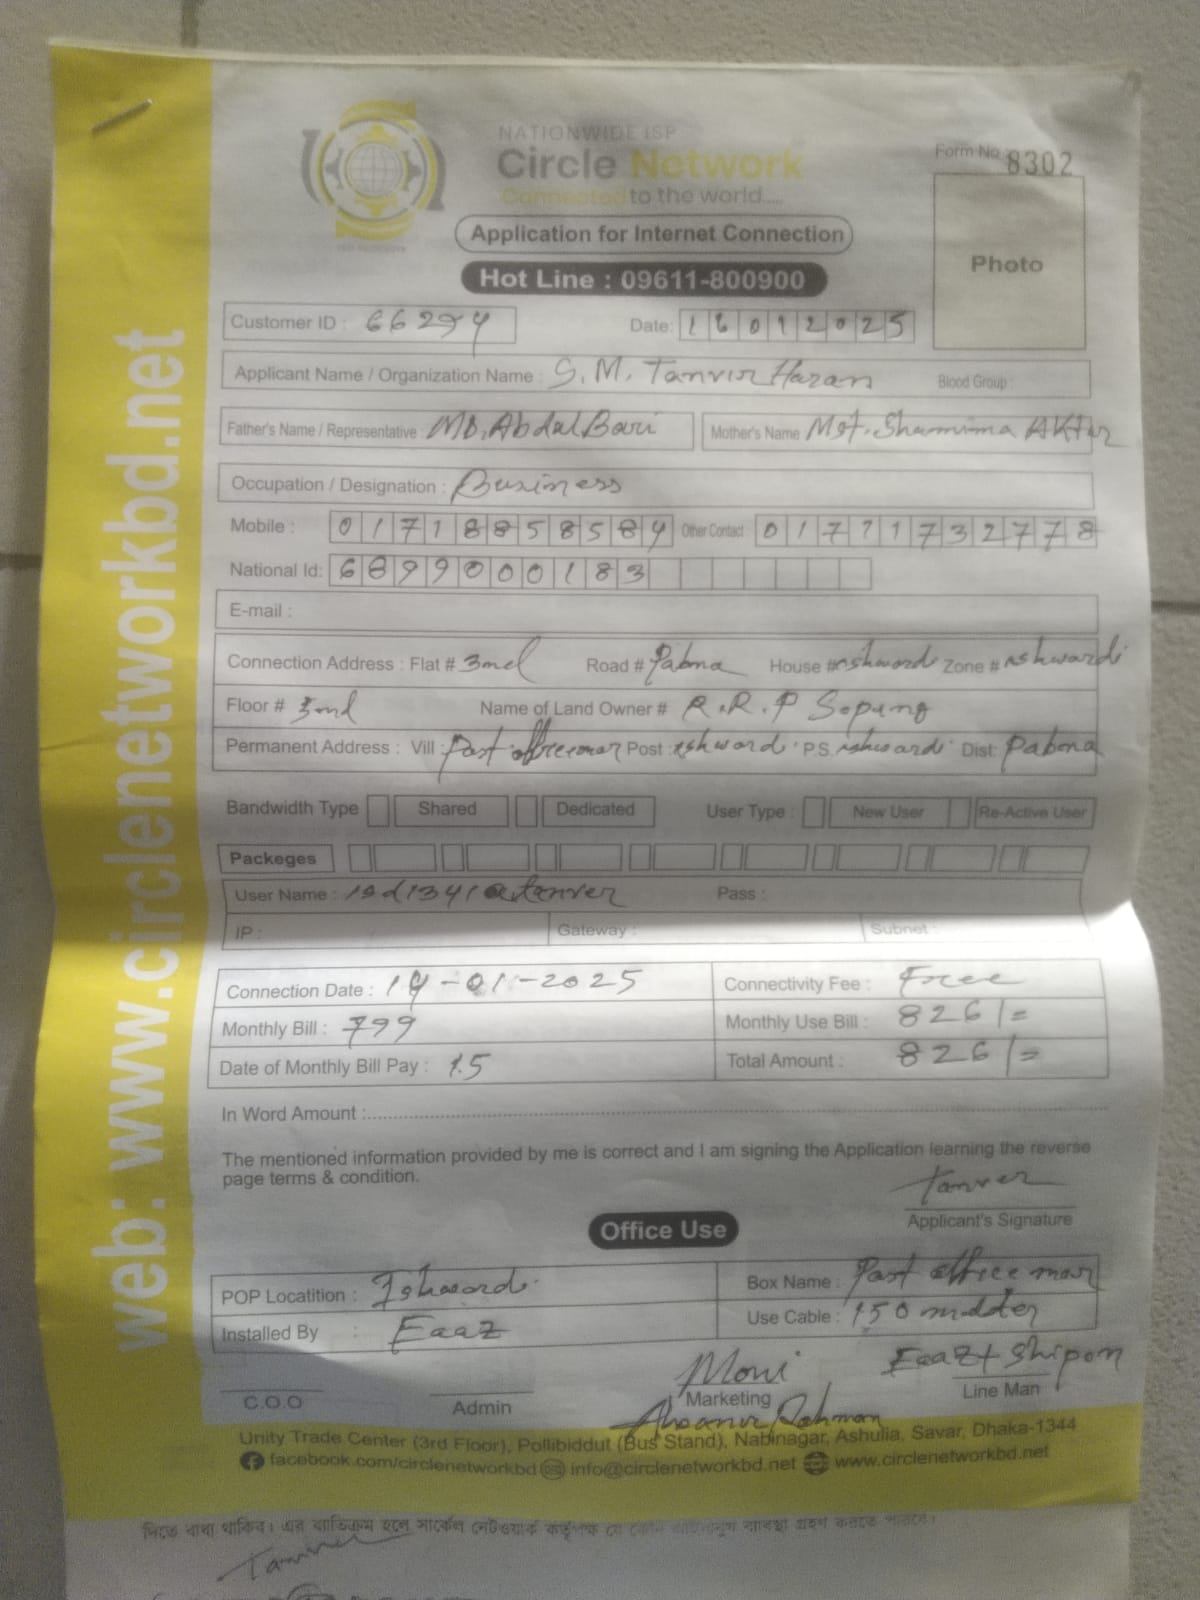 web: www.circlenetworkbd.net
NATIONWIDE ISP
Circle Network
Connected to the world.....
Form No. 8302
Application for Internet Connection
Photo
Hot Line : 09611-800900
Customer ID : 66294
Date: 16012025
Applicant Name / Organization Name : S. M. Tanvir Hasan
Blood Group :
Father's Name / Representative : MD. Abdul Bari
Mother's Name Mst. Shamima AKtar
Occupation / Designation : Business
Mobile : 01718858584 Other Contact : 01771732778
National Id: 6899000183
E-mail :
Connection Address : Flat # Road # Pabna House # Zone #
Floor # Name of Land Owner # R.R.P
Permanent Address : Vill : Post : P.S. Dist: Pabna
Bandwidth Type Shared Dedicated User Type : New User Re-Active User
Packeges
User Name : isd1341@tanver Pass :
IP : Gateway : Subnet :
Connection Date : 14-01-2025 Connectivity Fee : Free
Monthly Bill : 799 Monthly Use Bill : 826/=
Date of Monthly Bill Pay : 15 Total Amount : 826/=
In Word Amount :
The mentioned information provided by me is correct and I am signing the Application learning the reverse
page terms & condition.
Tanver
Applicant's Signature
Office Use
POP Locatition : Ishwordi Box Name : Post office mor
Installed By : Eaaz Use Cable : 150
Moni Eaaz + Shipon
C.O.O Admin Marketing Line Man
Rahman
Unity Trade Center (3rd Floor), Pollibiddut (Bus Stand), Nabinagar, Ashulia, Savar, Dhaka-1344
facebook.com/circlenetworkbd info@circlenetworkbd.net www.circlenetworkbd.net
দিতে বাধ্য থাকিব। এর ব্যতিক্রম হলে সার্কেল নেটওয়ার্ক কর্তৃপক্ষ যে কোন ব্যবস্থা গ্রহণ করতে পারবে।
Tanver